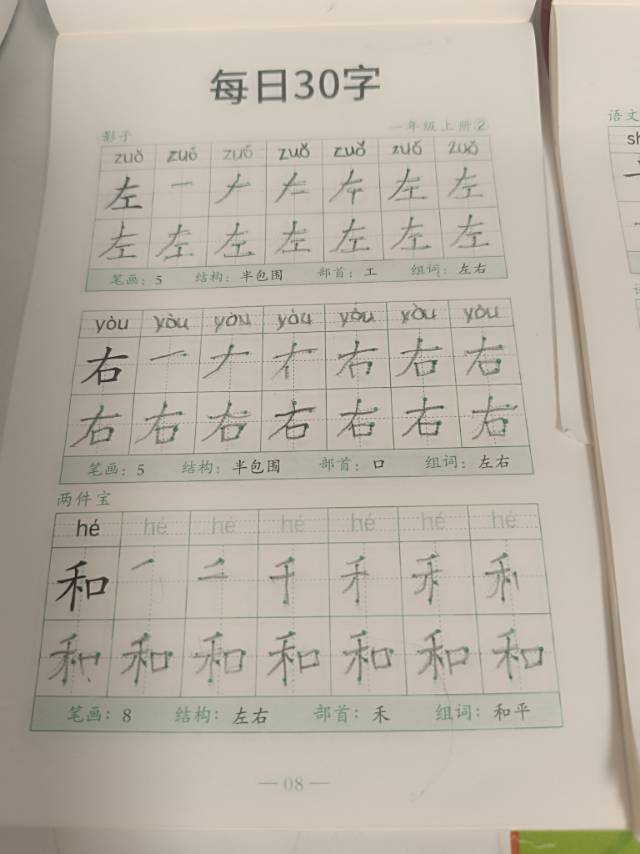 每日30字
影子 一年级上册②
zuǒ zuǒ zuǒ zuǒ zuǒ zuǒ zuǒ
左 一 𠂇 左 左 左
左 左 左 左 左 左 左
笔画：5 结构：半包围 部首：工 组词：左右
yòu yòu yòu yòu yòu yòu yòu
右 一 𠂇 右 右 右
右 右 右 右 右 右 右
笔画：5 结构：半包围 部首：口 组词：左右
两件宝
hé hé hé hé hé hé hé
和 一 二 千 禾 禾
和 和 和 和 和 和 和
笔画：8 结构：左右 部首：禾 组词：和平
— 08 —
语文